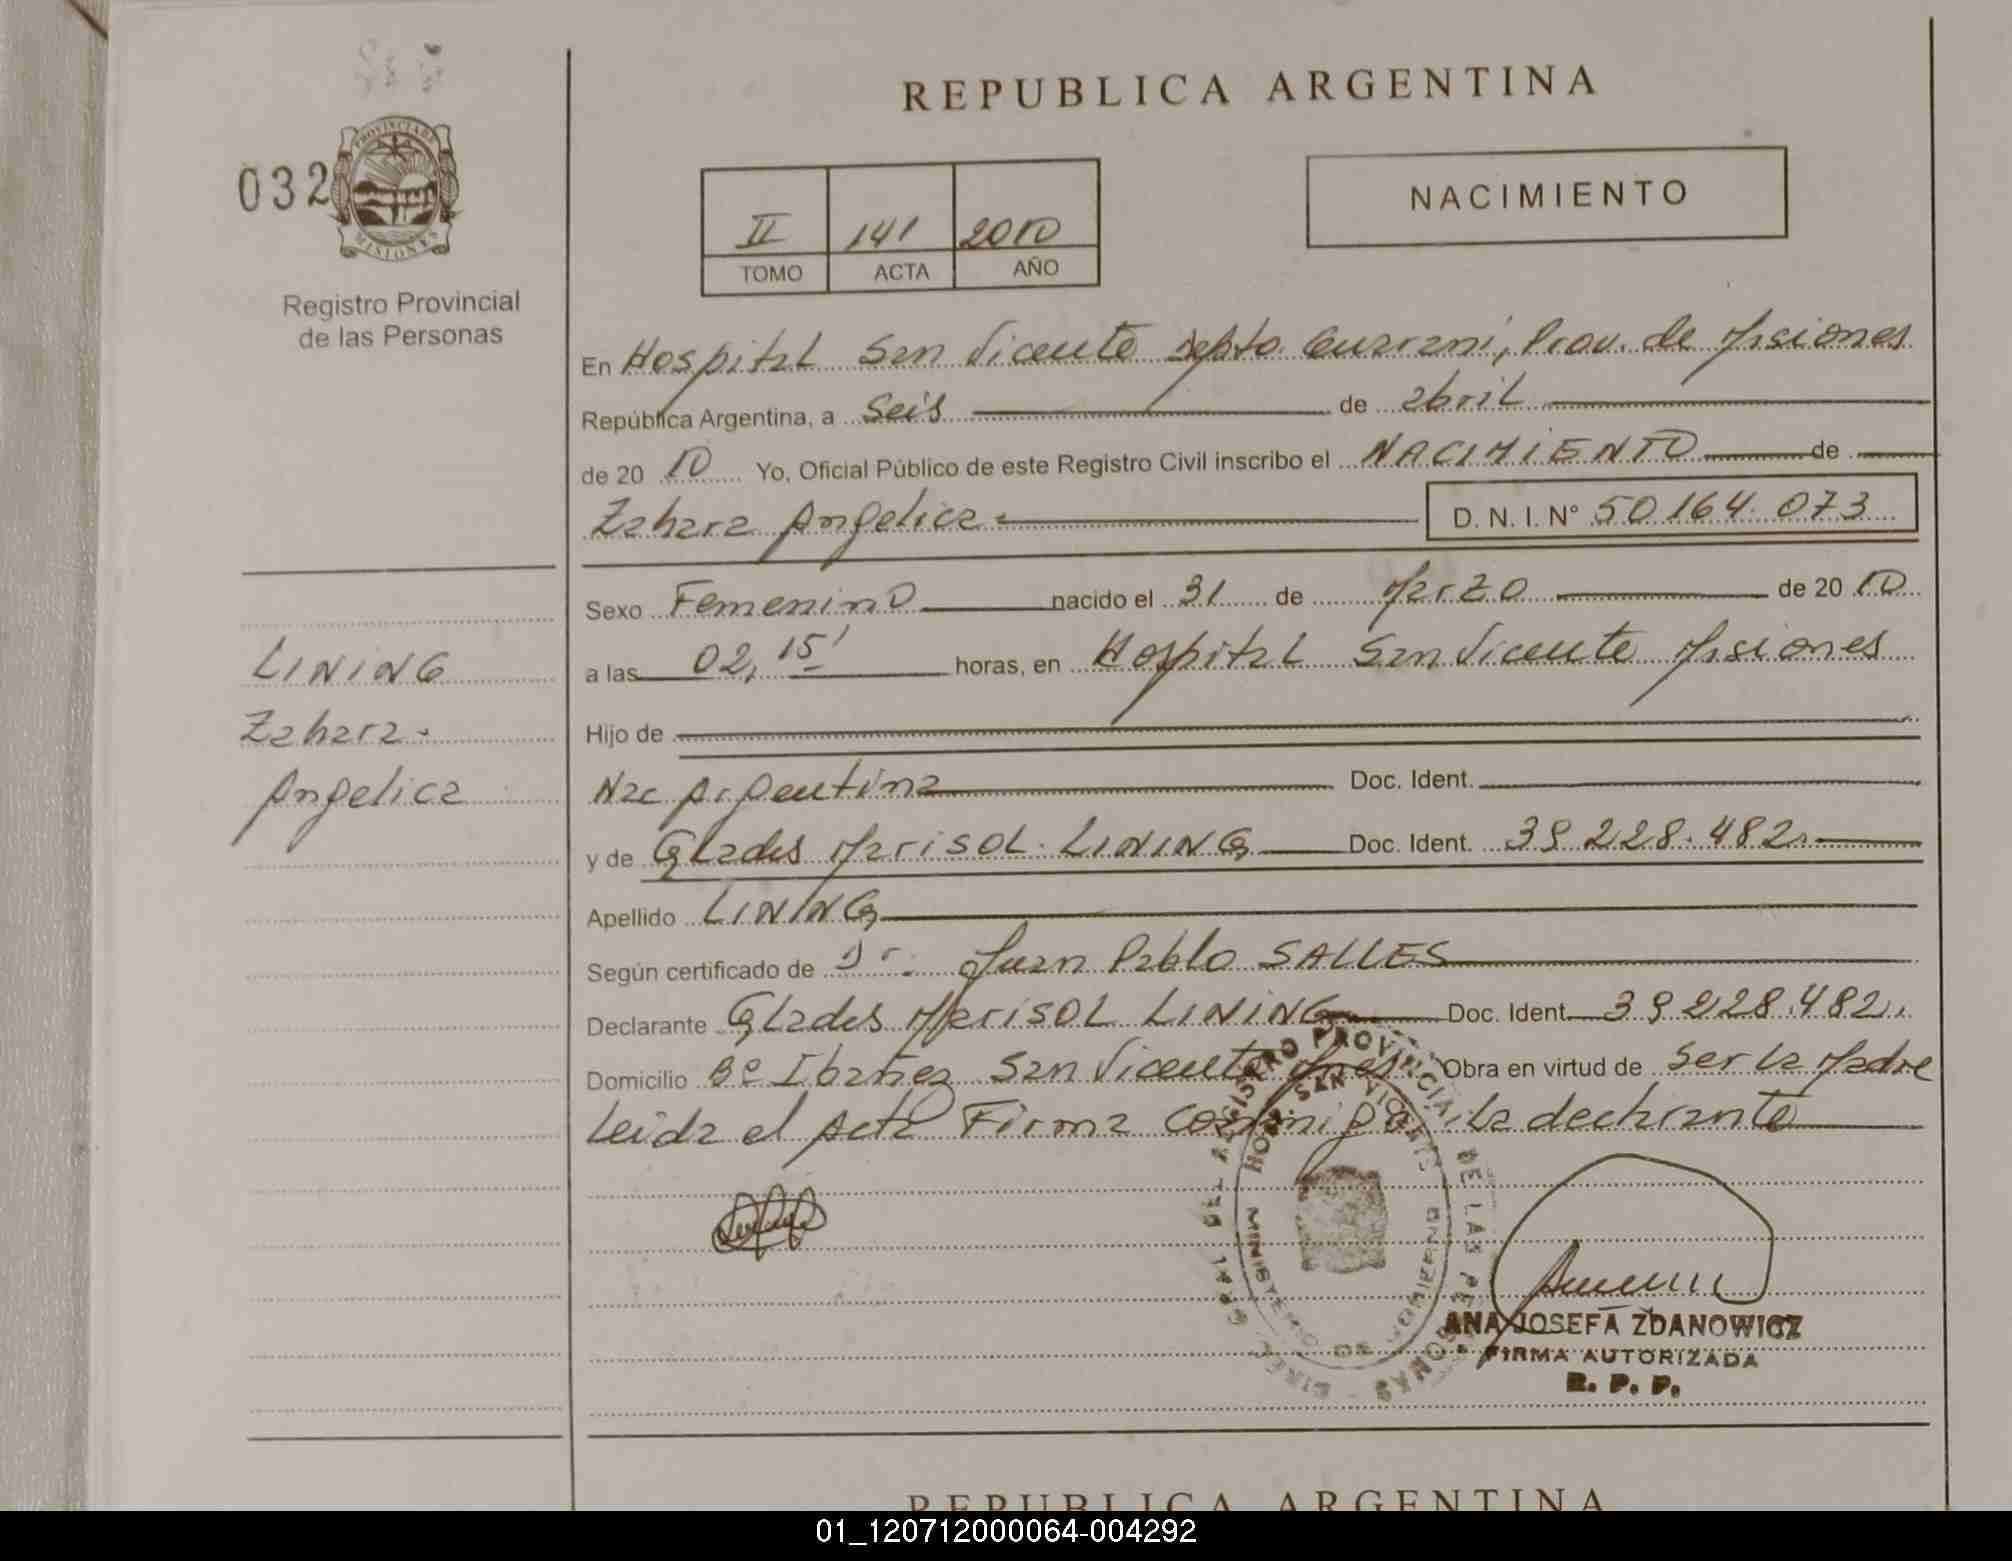 REPUBLICA ARGENTINA
032
PROVINCIA DE
MISIONES
Registro Provincial
de las Personas
II 141 2010
TOMO ACTA AÑO
NACIMIENTO
En Hospital San Vicente Dpto. Guarani, Prov. de Misiones
República Argentina, a Seis de abril
de 20 10 Yo, Oficial Público de este Registro Civil inscribo el NACIMIENTO de
Zahara Angelica D. N. I. N° 50.164.073
Sexo Femenino nacido el 31 de Marzo de 20 10
a las 02,15' horas, en Hospital San Vicente Misiones
Hijo de
Nac Argentina Doc. Ident.
y de Glades Marisol LINING Doc. Ident. 39.228.482
Apellido LINING
Según certificado de Dr. Juan Pablo SALLES
Declarante Glades Marisol LINING Doc. Ident. 39.228.482
Domicilio Bº Ibañez San Vicente Mnes. Obra en virtud de ser la Madre
Leida el Acta Firma conmigo la declarante
LINING
Zahara
Angelica
DIREC. GRAL. DEL REGISTRO PROVINCIAL DE LAS PERSONAS
HOSP. SAN VICENTE
MINISTERIO DE GOBIERNO
ANA JOSEFA ZDANOWICZ
FIRMA AUTORIZADA
R. P. P.
REPUBLICA ARGENTINA
01_120712000064-004292